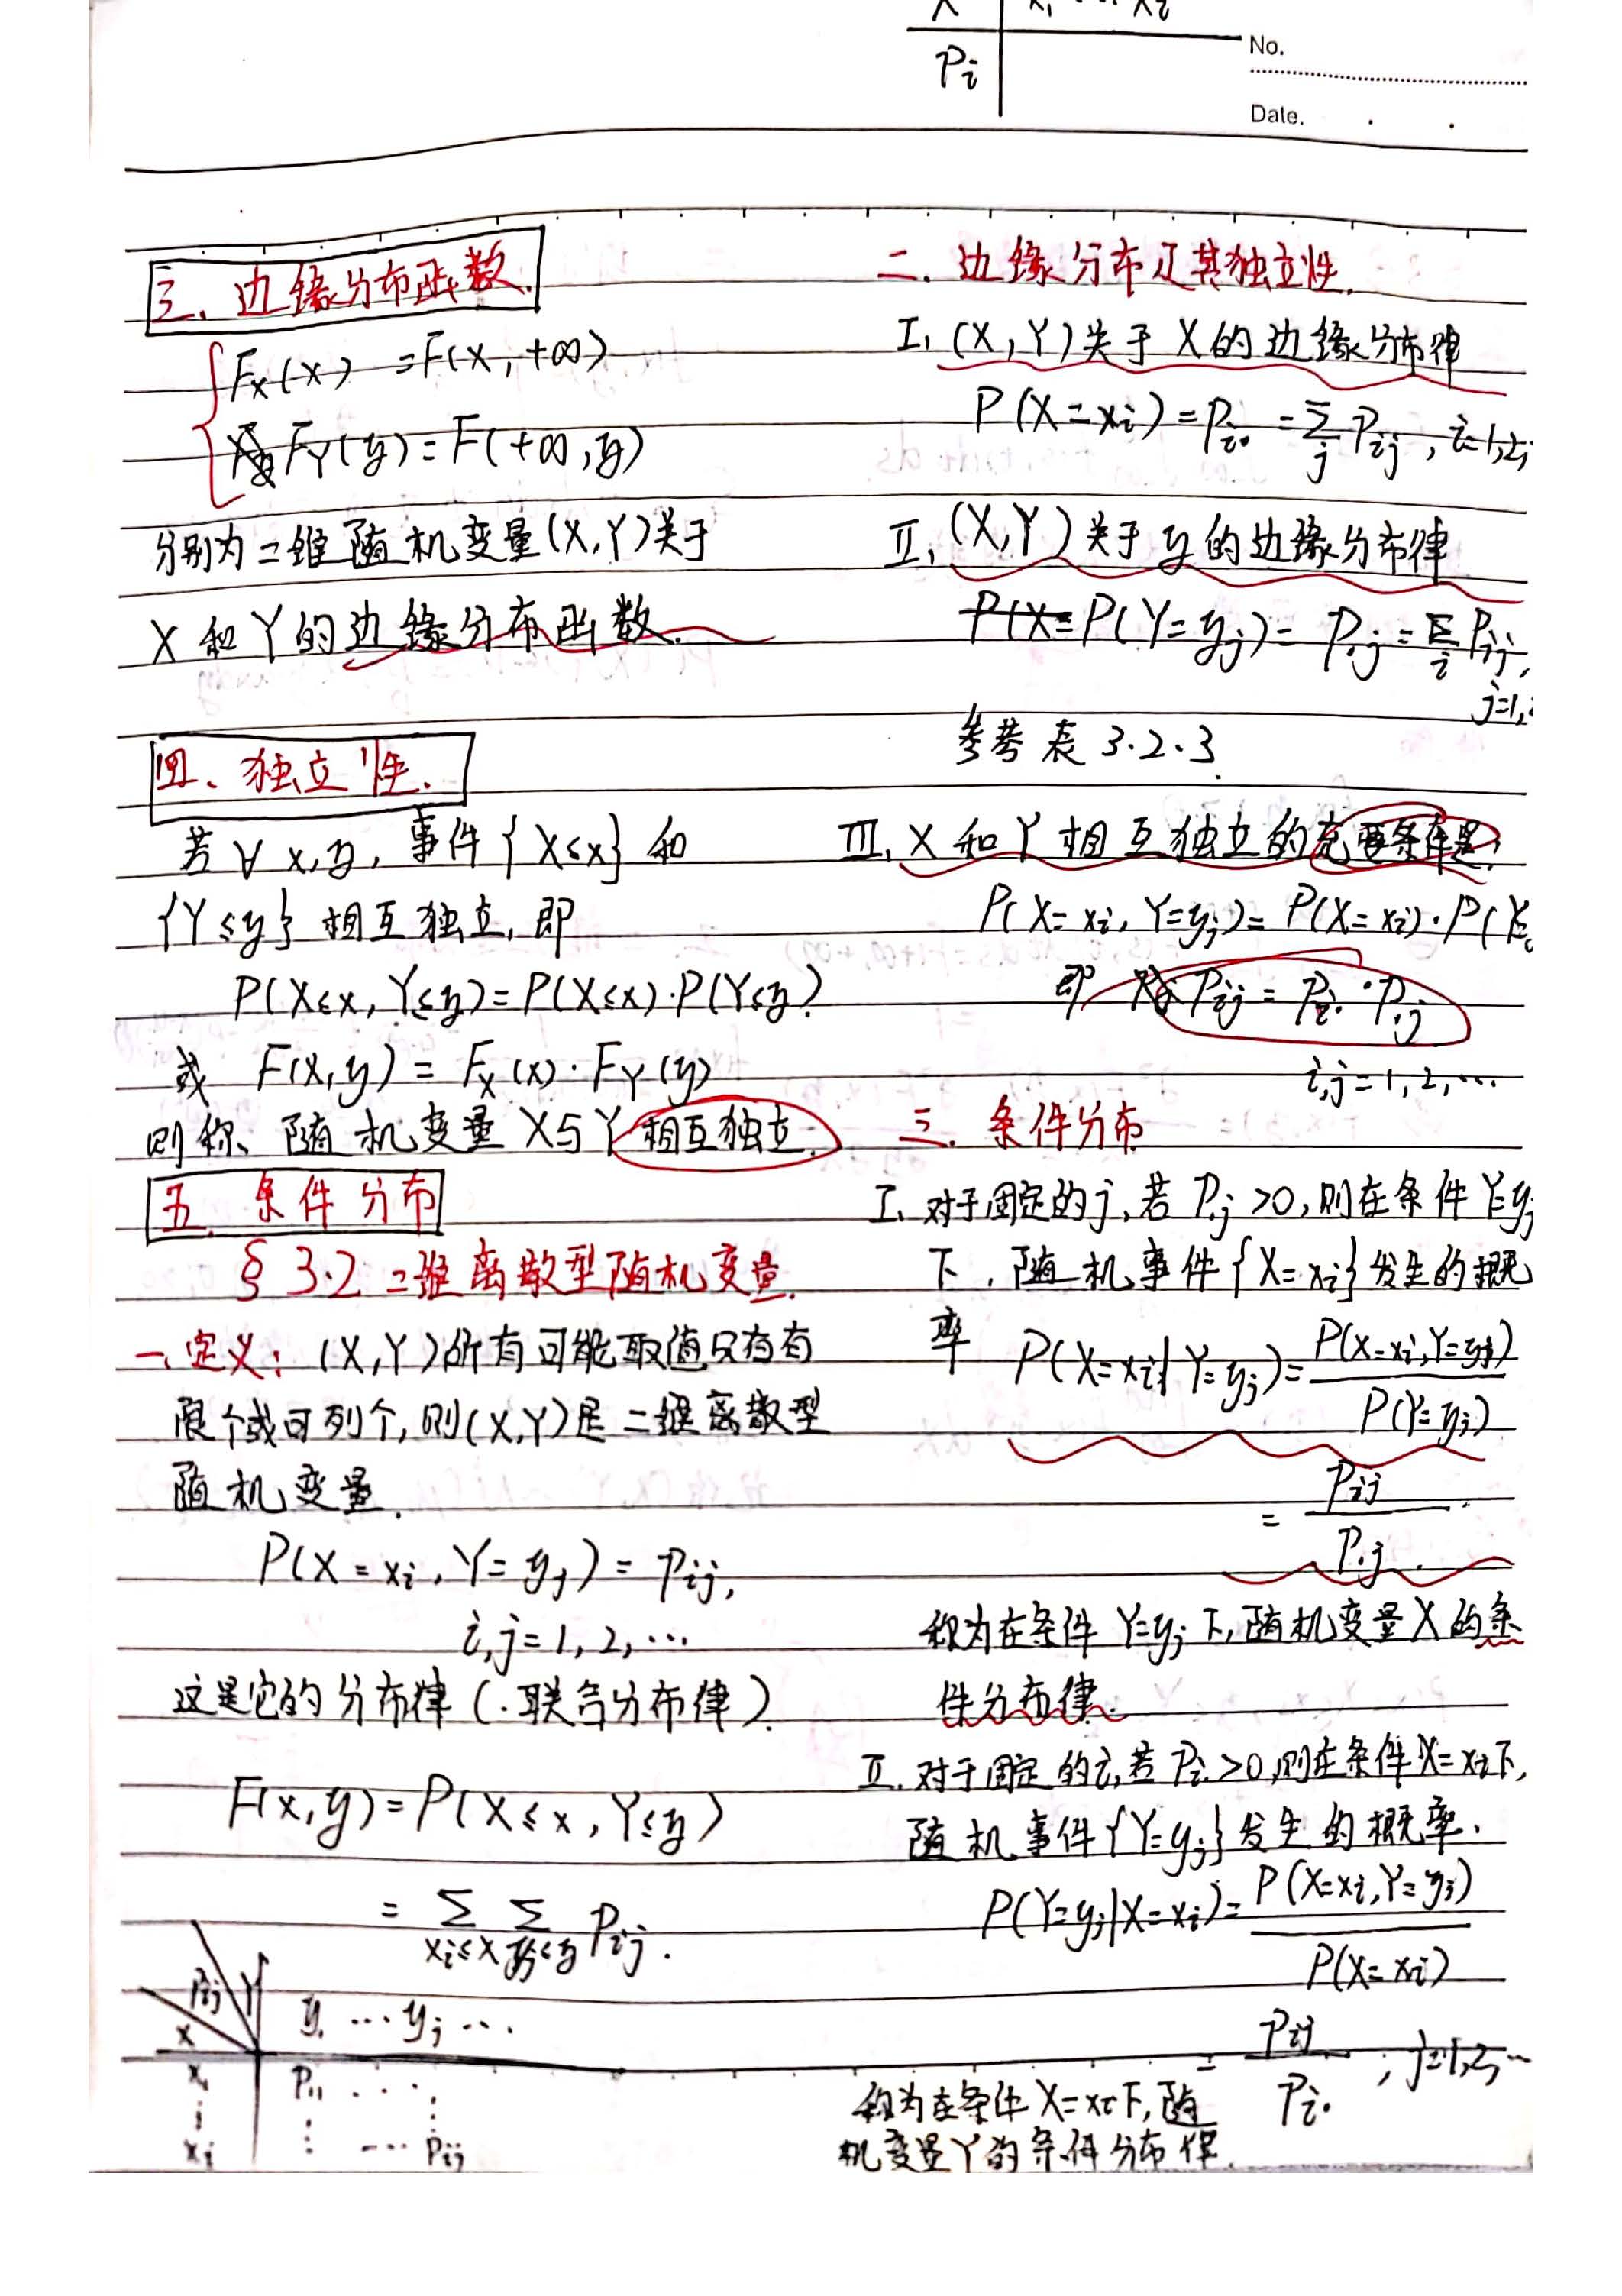 X | x₁ ... xᵢ
Pᵢ
No.
Date.
三、边缘分布函数.
Fx(x) = F(x, +∞)
F_Y(y) = F(+∞, y)
分别为二维随机变量(X,Y)关于
X 和 Y 的边缘分布函数.
四、独立性.
若 ∀ x, y, 事件{X≤x}和
{Y≤y}相互独立, 即
P(X≤x, Y≤y) = P(X≤x)·P(Y≤y)
或 F(x,y) = F_X(x)·F_Y(y)
则称、随机变量 X与Y相互独立.
五. 条件分布
§ 3.2 二维离散型随机变量.
一、定义: (X,Y)所有可能取值只有有
限个或可列个, 则(X,Y)是二维离散型
随机变量.
P(X=xᵢ, Y=yⱼ) = Pᵢⱼ,
i,j=1,2,…
这是它的分布律(联合分布律).
F(x,y) = P(X≤x, Y≤y)
= Σ_{xᵢ≤x} Σ_{yⱼ≤y} Pᵢⱼ.
Pᵢⱼ Y
X | y₁ … yⱼ …
x₁ | P₁₁ . . .
⋮ | ⋮ ⋮
xᵢ | … Pᵢⱼ
二. 边缘分布及其独立性.
I、(X,Y)关于 X 的边缘分布律
P(X=xᵢ) = Pᵢ. = Σ_j Pᵢⱼ, i=1,2,
II、(X,Y)关于 y 的边缘分布律
P(X= P(Y=yⱼ) = P.ⱼ = Σ_i Pᵢⱼ,
j=1,
参考表 3.2.3.
III、X 和 Y 相互独立的充要条件是:
P(X=xᵢ, Y=yⱼ) = P(X=xᵢ)·P(Y=
即 Pᵢⱼ = Pᵢ.·P.ⱼ
i,j=1,2,…
三. 条件分布
I、对于固定的j, 若 P.ⱼ>0, 则在条件 Y=yⱼ
下, 随机事件{X=xᵢ}发生的概
率 P(X=xᵢ|Y=yⱼ) = P(X=xᵢ,Y=yⱼ) / P(Y=yⱼ)
= Pᵢⱼ / P.ⱼ.
称为在条件 Y=yⱼ下, 随机变量X的条
件分布律.
II. 对于固定的i, 若 Pᵢ.>0, 则在条件X=xᵢ下,
随机事件{Y=yⱼ}发生的概率.
P(Y=yⱼ|X=xᵢ) = P(X=xᵢ,Y=yⱼ) / P(X=xᵢ)
= Pᵢⱼ / Pᵢ. , j=1,2,…
称为在条件 X=xᵢ下, 随
机变量Y的条件分布律.